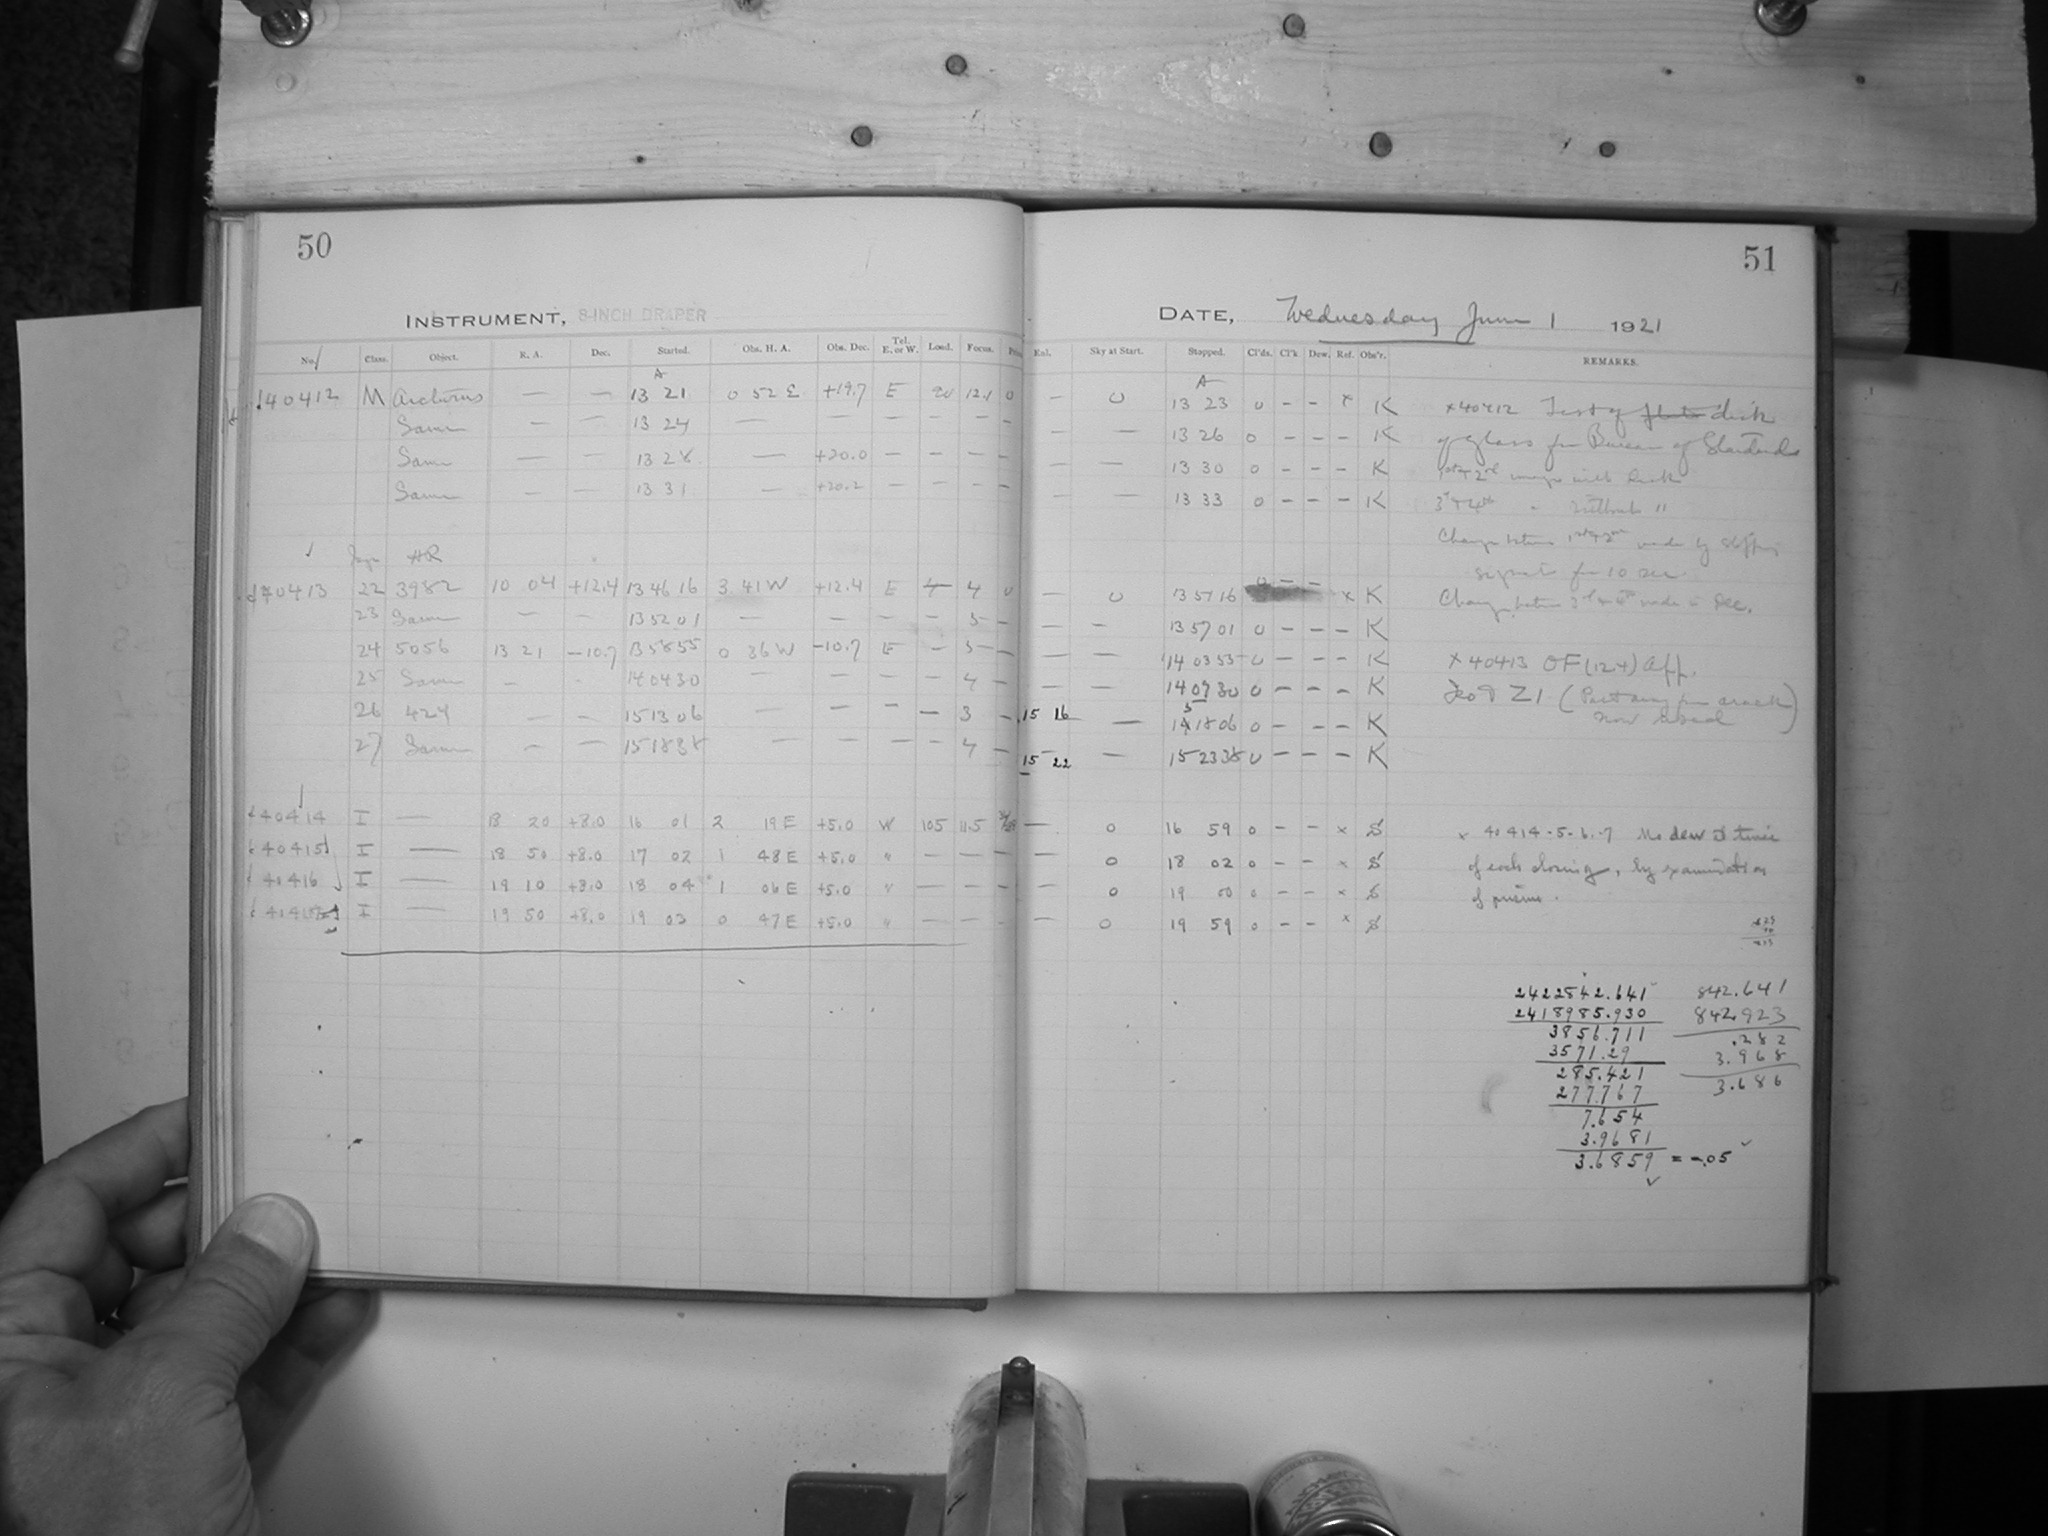 50
INSTRUMENT, 8-INCH DRAPER
No. Class. Object. R. A. Dec. Started. Obs. H. A. Obs. Dec. Tel. E. or W. Load. Focus.
40412 M Arcturus — — 13 21 0 52 E +19.7 E 90 12.1 0
Same — — 13 24 — — — — — —
Same — — 13 28 — +20.0 — — — —
Same — — 13 31 — +20.2 — — — —
HR
40413 22 3982 10 04 +12.4 13 46 16 3 41 W +12.4 E 4 0
23 Same — — 13 52 01 — — — — 5 —
24 5056 13 21 -10.7 13 58 55 0 36 W -10.7 E — 5 —
25 Same — — 14 04 30 — — — — 4
26 424 — — 15 13 06 — — — — 3 —
27 Same — — 15 18 38 — — — — 4 —
40414 I — 18 20 +8.0 16 01 2 19 E +5.0 W 105 11.5
40415 I — 18 50 +8.0 17 02 1 48 E +5.0 " — — —
40416 I — 19 10 +8.0 18 04 1 06 E +5.0 " — — —
I — 19 50 +8.0 19 03 0 47 E +5.0 " — — —
51
DATE, Wednesday June 1 1921
Sky at Start. Stopped. Cl'ds. Cl'k Dew. Ref. Obs'r. REMARKS.
— 0 13 23 0 — — x K x 40412 Test of disk
— — 13 26 0 — — — K of glass for Bureau of Standards
— — 13 30 0 — — — K 1st + 2nd image with disk
— — 13 33 0 — — — K 3d + 4th " without "
Change between 1st + 2nd made by stopping
sidereal for 10 sec.
— 0 13 51 16 0 — — x K Change between 3d + 4th made in Dec.
— — 13 57 01 0 — — — K
— — 14 03 55 0 — — — K x 40413 OF (12.4) aff.
— — 14 09 30 0 — — — K
15 16 — 15 18 06 0 — — — K
15 22 — 15 23 38 0 — — — K
— 0 16 59 0 — — x S x 40414-5-6-7 No dew at time
— 0 18 02 0 — — x S of each closing, by examination
— 0 19 00 0 — — x S of prism.
— 0 19 59 0 — — x S
2422842.641
2418985.930
3856.711
3571.29
285.421
277.767
7.654
3.9681
3.6859 = -.05
842.641
842.923
.282
3.968
3.686